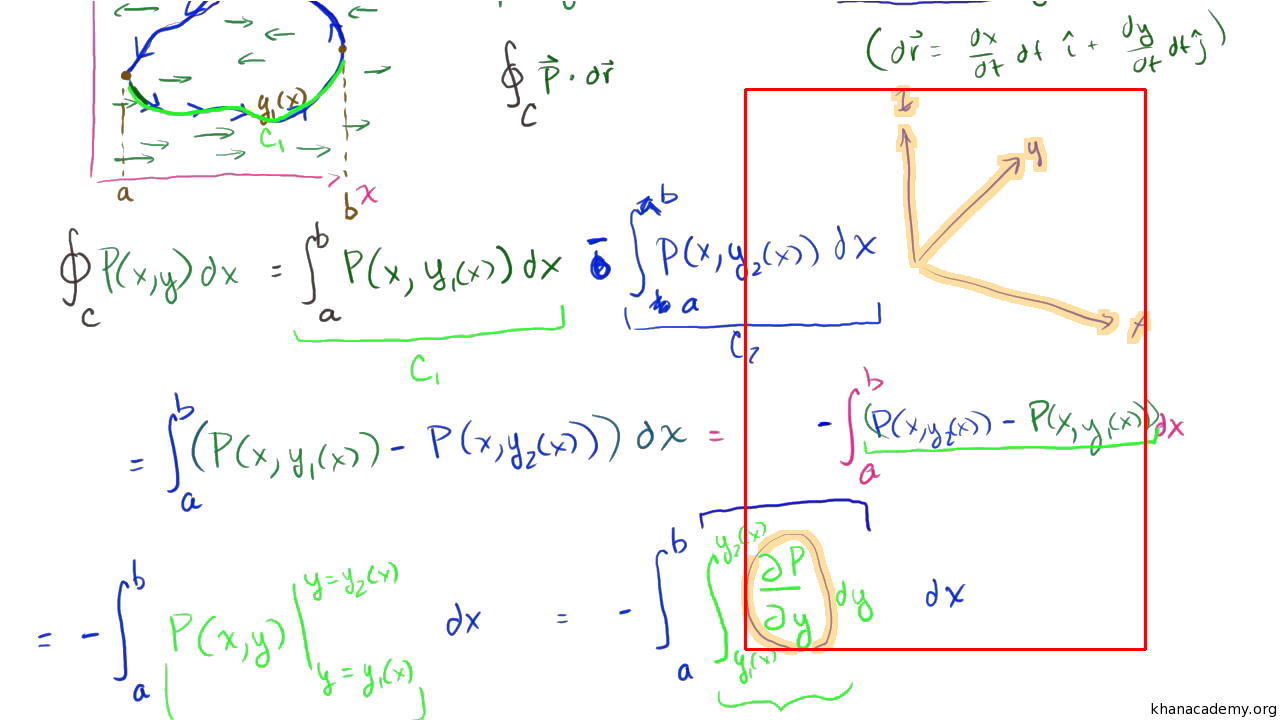 (d\vec{r} = \frac{dx}{dt} dt \hat{i} + \frac{dy}{dt} dt \hat{j})
\oint_C \vec{P} \cdot d\vec{r}
y_1(x)
C_1
a
b
x
y
x
\oint_C P(x,y) dx = \int_a^b P(x, y_1(x)) dx - \int_a^b P(x, y_2(x)) dx
C_1
C_2
= \int_a^b (P(x, y_1(x)) - P(x, y_2(x))) dx = - \int_a^b (P(x, y_2(x)) - P(x, y_1(x))) dx
= - \int_a^b P(x,y) |_{y = y_1(x)}^{y = y_2(x)} dx = - \int_a^b \int_{y_1(x)}^{y_2(x)} \frac{\partial P}{\partial y} dy dx
khanacademy.org